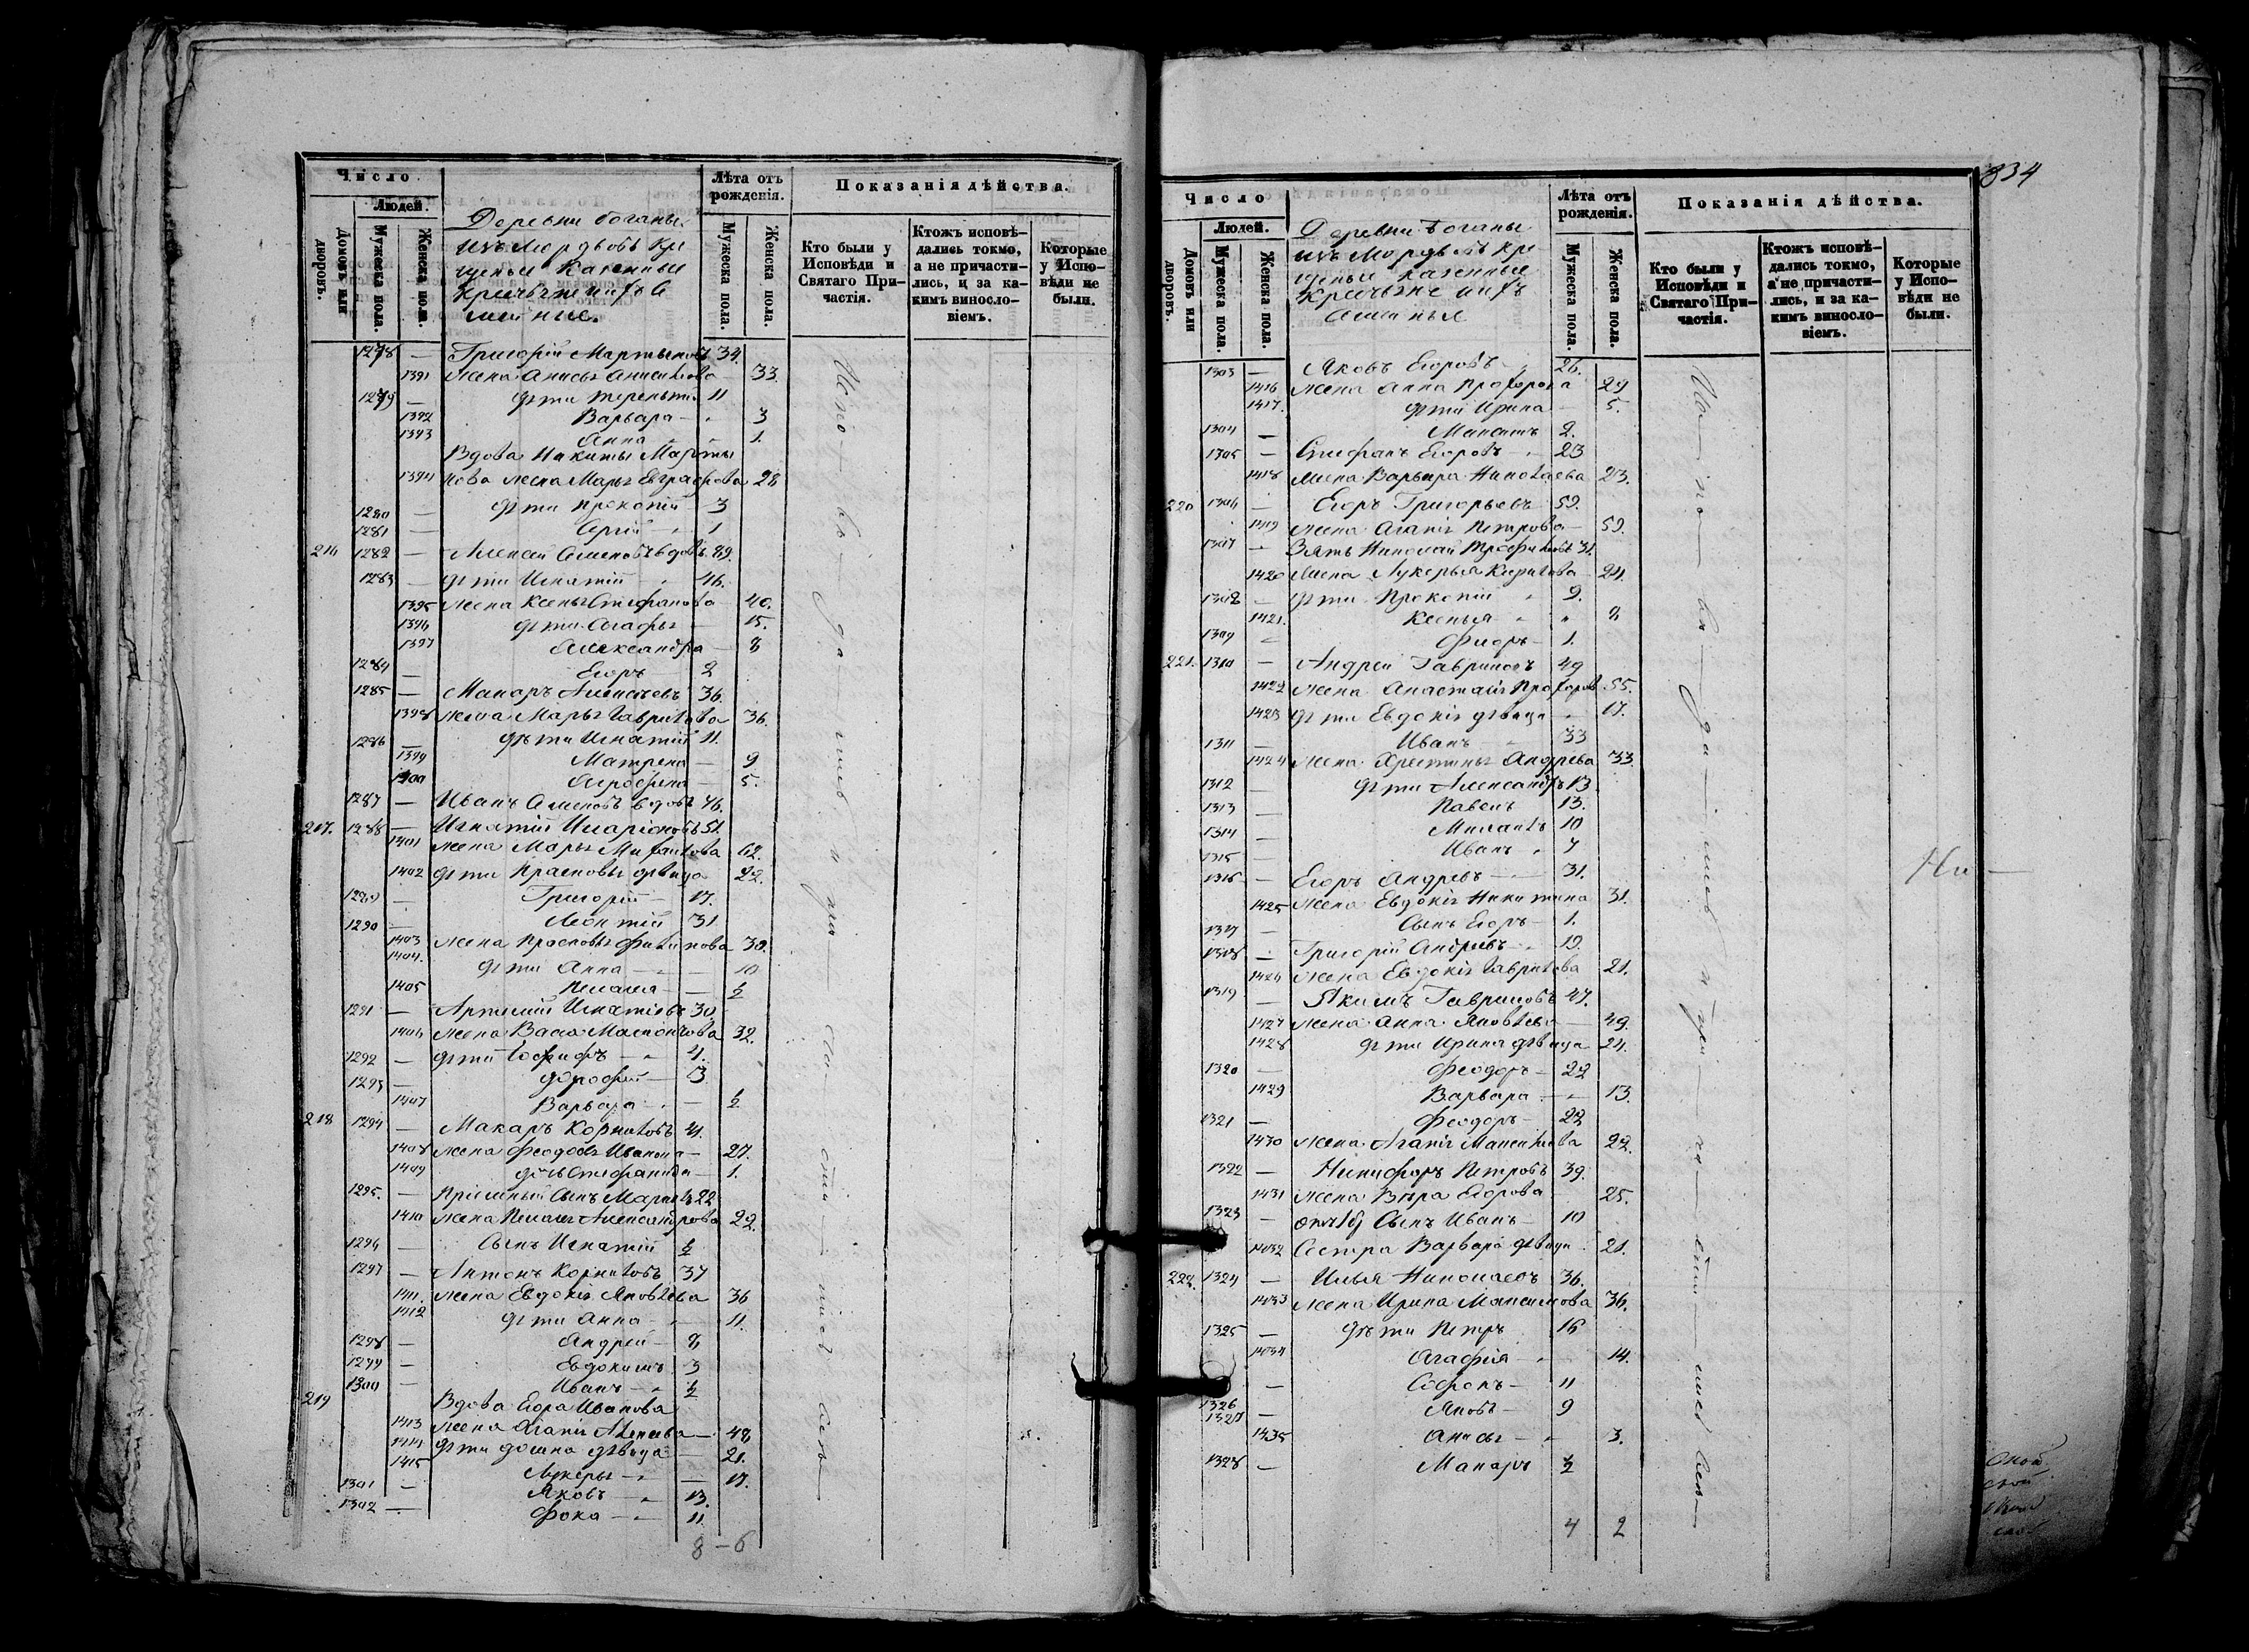 Число
Людей.
Домовъ или дворовъ.
Мужеска пола.
Женска пола.
Деревни Боганы
изъ Мордвовъ кре
щеные казенные
крестьяне и ихъ до
машные.
Лѣта отъ рожденія.
Мужеска пола.
Женска пола.
Показанія дѣйства.
Кто были у Исповѣди и Святаго Причастія.
Ктожъ исповѣдались токмо, а не причастились, и за какимъ винословіемъ.
Которые у Исповѣди не были.
1278 — Григорій Мартыновъ 34.
1391 жена Анисья Анисимова 33.
1279 — дѣти Терентій 11
1392 Варвара — 3
1393 Анна — 1.
Вдова Никиты Марты
1394 нова жена Марья Евграфова 28
1280 — дѣти Прокопій — 3
1281 — Сергій — 1
216 1282 — Алексей Семеновъ вдовъ 89.
1283 — дѣти Игнатій — 46.
1395 жена Ксенья Стефанова 40.
1396 дѣти Агафья — 15.
1397 Александра — 8
1284 — Егоръ 2
1285 — Макаръ Алексеевъ 36.
1398 жена Марья Гаврилова 36.
1286 — дѣти Игнатій 11.
1399 Матрена — 9
1400 Агрофена — 5.
1287 — Иванъ Семеновъ вдовъ 46.
217. 1288 — Игнатій Иларіоновъ 51.
1401 жена Марья Михаилова 62.
1402 дѣти Прасковья дѣвица 22.
1289 — Григорій — 17.
1290 — Леонтій 31
1403 жена Прасковья Филипова 30.
1404. дѣти Анна — 10
1405 Пелагея — ½
1291 — Артемій Игнатіевъ 30.
1406 жена Васса 32.
1292 — дѣти 4.
1293 — Дорофей — 3
1407 Варвара — ½
218 1294 — Макаръ Корниловъ 41.
1408 жена Феодосья Иванова — 27.
1409 дочь Стефанида — 1.
1295. — Пріемный сынъ 22
1410 жена Пелагея Александрова 22.
1296 — Сынъ Игнатій ½
1297 — Антонъ Корниловъ 37
1411. жена Евдокія Яковлева 36
1412 дѣти Анна — 11.
1298 — Андрей — 8
1299 — Евдокимъ 3
1300 — Иванъ — ½
219 Вдова Егора Иванова
1413 жена Агапія Алексеева — 48
1414 дѣти Домна дѣвица — 21.
1415 Лукерья — 17.
1301 — Яковъ — 13.
1302 — Фока — 11.
8 — 6
834
Число
Людей.
Домовъ или дворовъ.
Мужеска пола.
Женска пола.
Деревни Боганы
изъ Мордвовъ кре
щеные казенные
крестьяне и ихъ
домашные
Лѣта отъ рожденія.
Мужеска пола.
Женска пола.
Показанія дѣйства.
Кто были у Исповѣди и Святаго Причастія.
Ктожъ исповѣдались токмо, а не причастились, и за какимъ винословіемъ.
Которые у Исповѣди не были.
1303 — Яковъ Егоровъ 26.
1416 жена Анна Прохорова 29
1417. дѣти Ирина — 5.
1304 — 2.
1305 — Стефанъ Егоровъ — 23
1418 жена Варвара Николаева 23.
220 1306 — Егоръ Григорьевъ — 59.
1419 жена Агапія Петрова — 59.
1307 — Зять Николай Трофимовъ 31.
1420 жена Лукерья Кирилова — 24.
1308 — дѣти Прокопій 9.
1421. Ксенья 8
1309 — 1.
221. 1310 — Андрей Гавриловъ 49
1422 жена Анастасія Прохоров 55.
1423 дѣти Евдокія дѣвица 17.
1311 — Иванъ 33
1424 жена Хрестинья Андреева 33.
1312 — дѣти Александръ 13.
1313 — Павелъ 13.
1314 — Михаилъ 10
1315 — Иванъ 7
1316 — Егоръ Андреевъ — 31.
1425 жена Евдокія Никитина 31.
1317 — Сынъ Егоръ — 1.
1318 — Григорій Андреевъ — 19.
1426 жена Евдокія Гаврилова 21.
1319 — Якимъ Гавриловъ 47.
1427 жена Анна Яковлева 49.
1428 дѣти Ирина дѣвица 24.
1320 — Феодоръ — 22
1429 Варвара — 13.
1321 — Феодоръ — 22
1430 жена Агапія Максимова 22.
1322 — Никифоръ Петровъ 39.
1431 жена Вѣра Егорова 25.
1323 — Сынъ Иванъ — 10
1432 Сестра Варвара дѣвица 21.
222. 1324 — Илья Николаевъ 36.
1433 жена Ирина Максимова 36.
1325 — дѣти Петръ 16
1434 Агафія — 14.
— Софронъ — 11
1326
1327 — Яковъ — 9
1435 Анисья — 3.
1328 — Макаръ ½
4 2